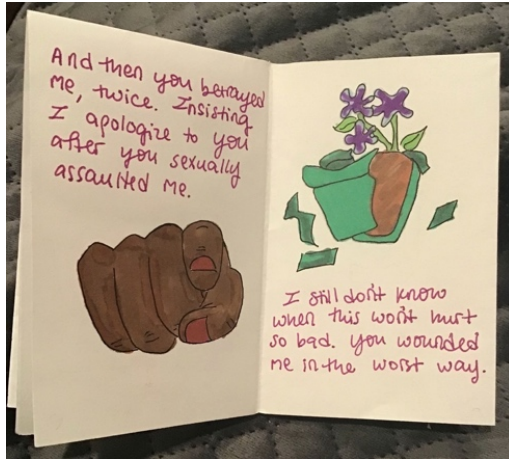 And then you betrayed
me, twice. Insisting
I apologize to you
after you sexually
assaulted me.
I still don't know
when this won't hurt
so bad. You wounded
me in the worst way.